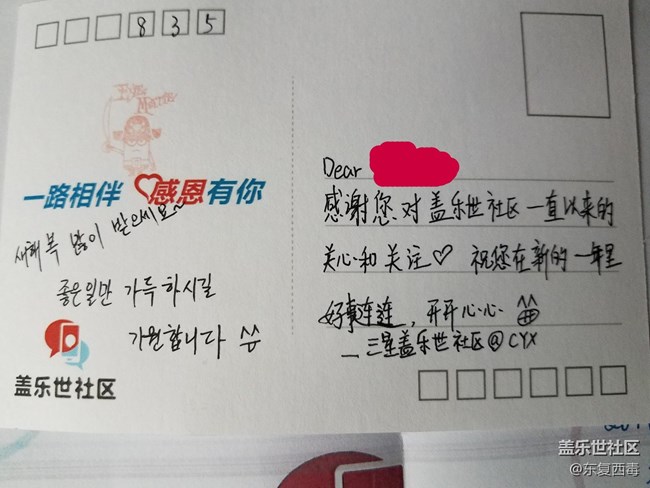 835
一路相伴 感恩有你
새해 복 많이 받으세요~
좋은일만 가득하시길
기원합니다 ^^
盖乐世社区
Dear
感谢您对盖乐世社区一直以来的
关心和关注♡ 祝您在新的一年里
好事连连，开开心心
— 三星盖乐世社区@CYX
盖乐世社区
@东复西毒